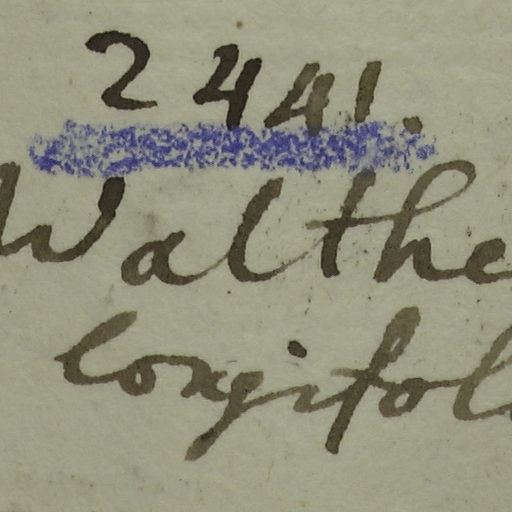 2441.
Walthe
longifol